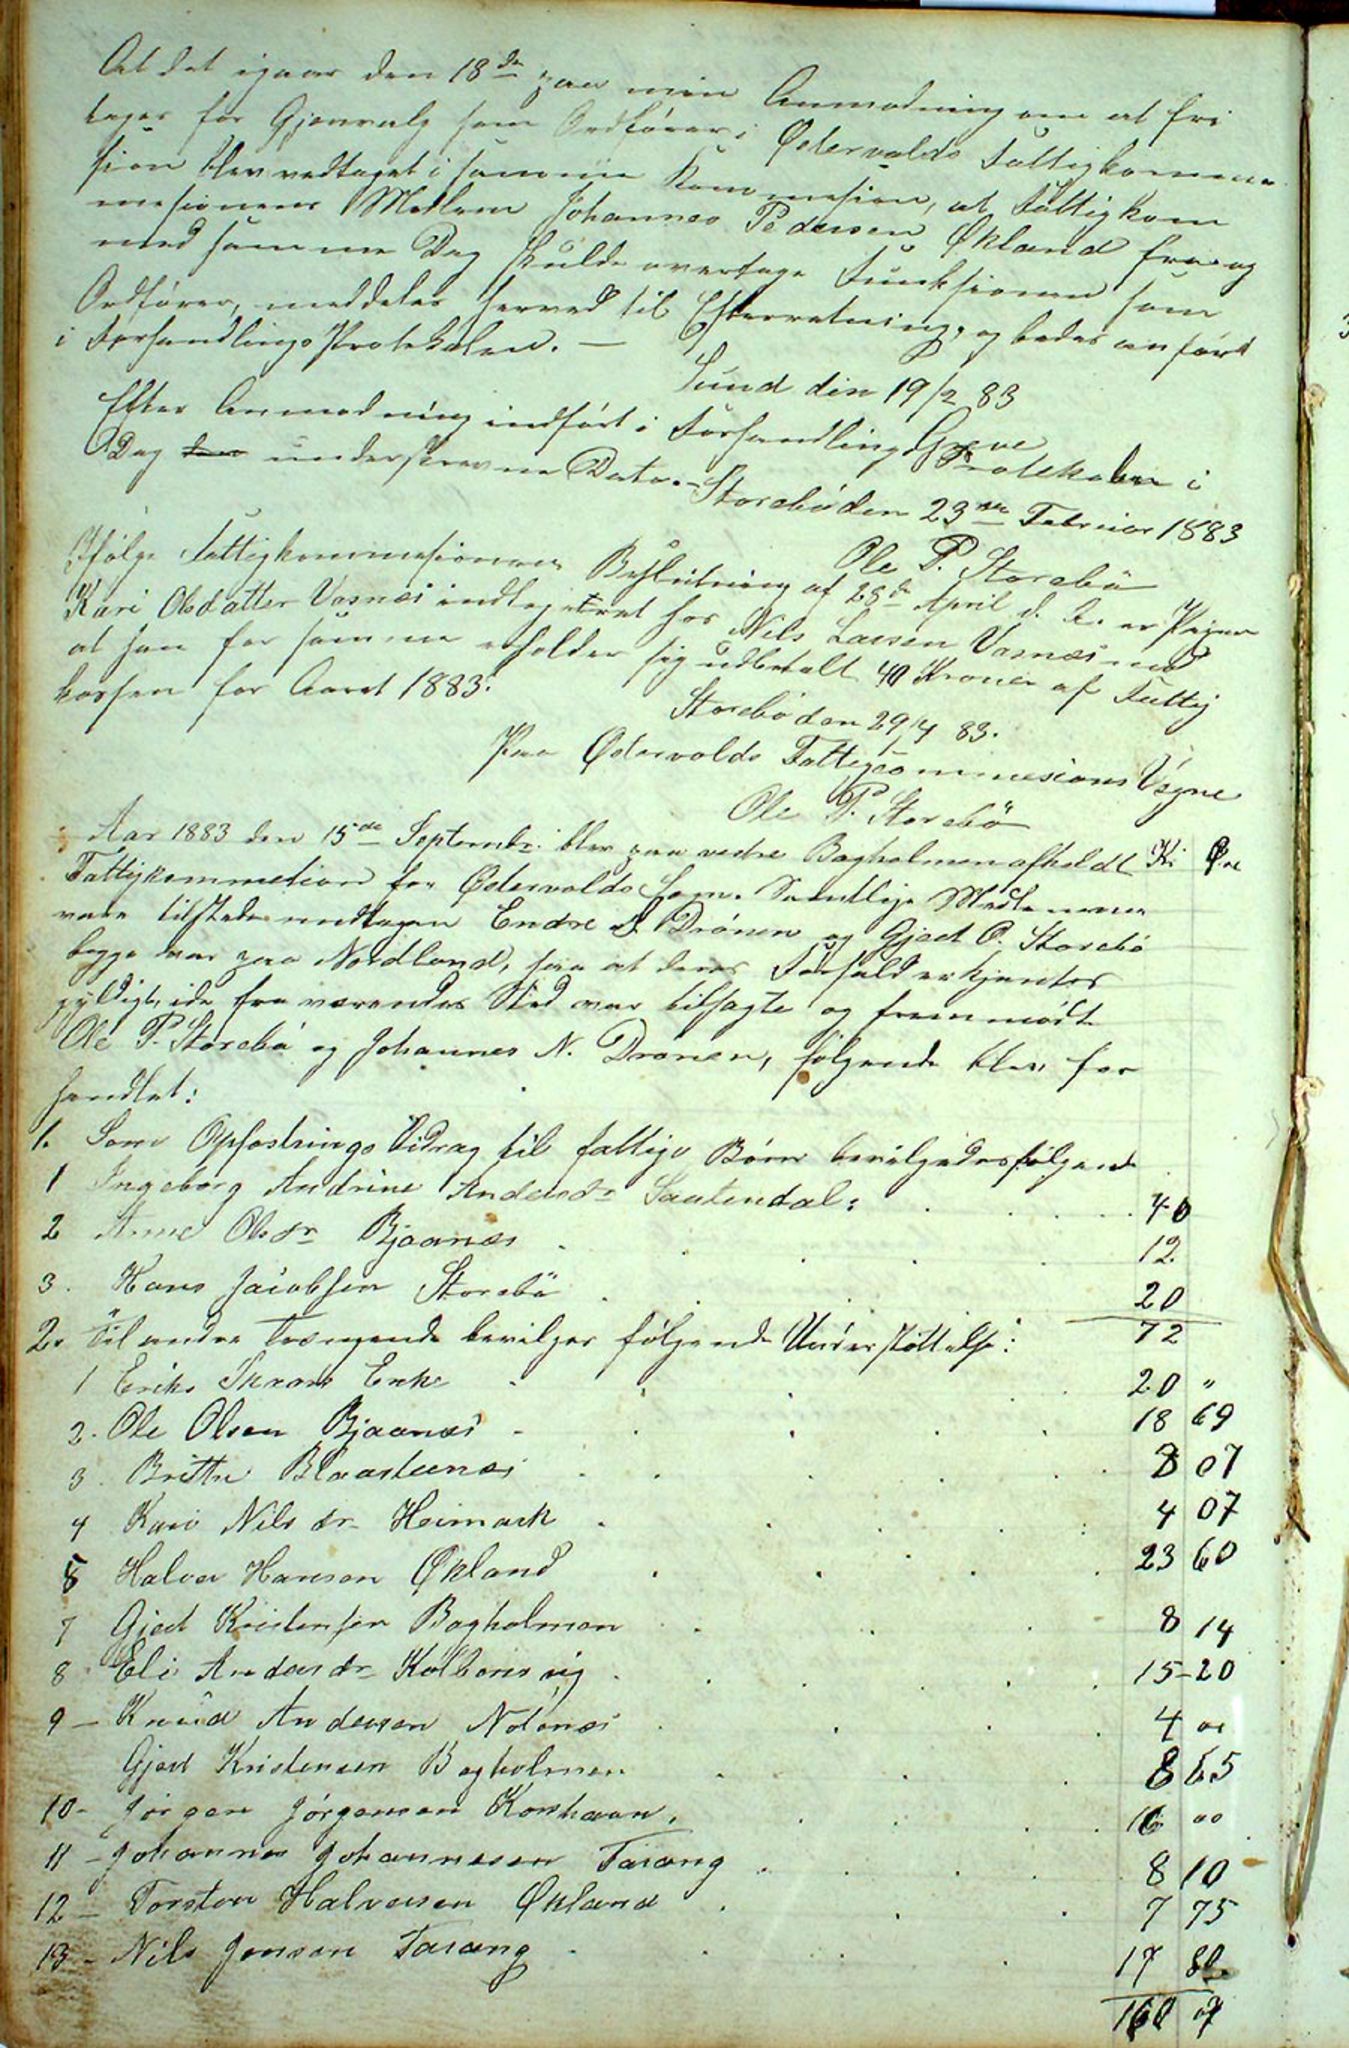 At det igaar den 18de paa min Anmodning om at fri
tages for Gjenvalg som Ordfører i Østervolds Fattigkommis
sion blev vedtaget i samme Kommission, at Fattigkom
mesionens Medlem Johannes Pedersen Økland fra og
med samme Dag skulde overtage Funksionen som
Ordfører, meddeles herved til Efterretning, og bedes anført
i Forhandlings Protokolen. —
Sund den 19/2 83
Greve
Efter Anmodning indført i Forhandlings Protokolen i
Dag underskrevne Dato. - Storebø den 23de Februar 1883
Ole P. Storebø
Ifølge Fattigkommesionens Beslutning af 28de April d. A. er Pigen
Kari Olsdatter Vasnes indlogeret hos Nils Larsen Vasnes mod
at han for samme erholder sig udbetalt 40 Kroner af Fattig
kassen for Aaret 1883.
Storebø den 29/4 83.
Paa Østervolds Fattigcommesions Vegne
Ole P. Storebø
Aar 1883 den 15de Septembr. blev paa vedre Bagholmen afholdt Kr Øre
Fattigkommetion for Østervolds Sogn. Samtlige Medlemmer
vare tilstede undtagen Endre J. Drönen og Gjert O. Storebø
begge var paa Nordland, saa at deres Forfald erkjentes
gyldigt, i de fraværendes Sted var tilsagte og fremmødt
Ole P. Storebø og Johannes N. Drønen, følgende blev for
handlet:
1. Som Opfostrings Bidrag til fattige Børn bevilgedes følgende
1 Ingeborg Andrine Andersdr Sautendal: 40
2 Anne Olsdr Bjaanæs 12
3. Hans Jacobsen Storebø 20
72
2. Til andre Trængende bevilges følgende Understøttelse:
1 Eriks Skaars Enke 20 "
2. Ole Olsen Bjaanæs 18 69
3 Britha Blaastenæs 8 07
4 Kari Nilsdr Heimark 4 07
5 Halvor Hansen Økland 23 60
7 Gjert Kristensen Bagholmen 8 14
8 Eli Andersdr Kolbensvig 15-20
9 - Knud Andersen Notanæs 4 00
Gjert Kristensen Bagholmen 8 65
10- Jørgen Jørgensen Korshavn, 16 00
11 - Johannes Johannesen Tarang 8 10
12 - Torsten Halvorsen Økland 7 75
13 - Nils Jonsen Tarang 17 80
160 07